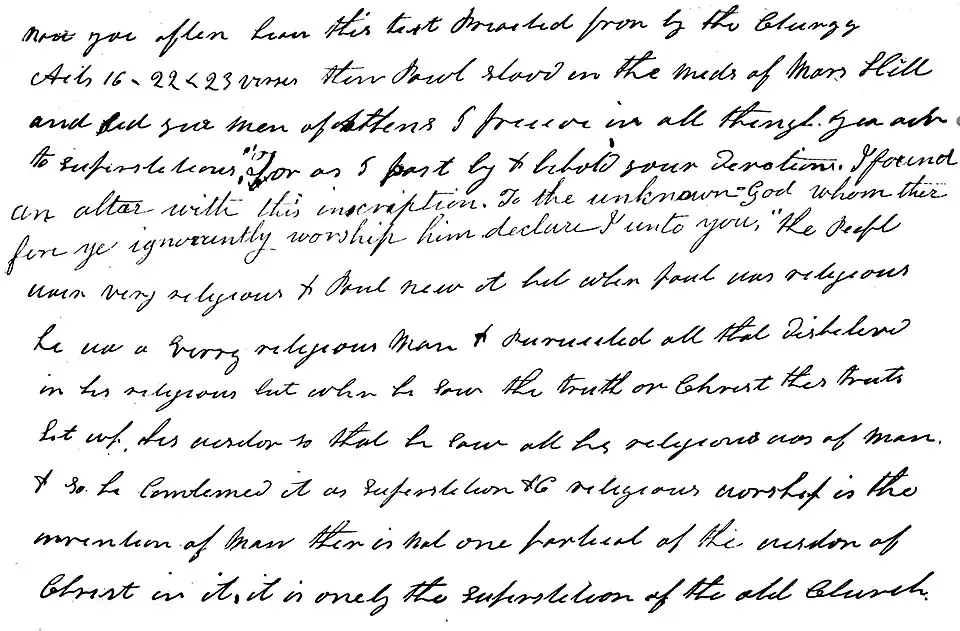 now you often hear this text Preached from by the Clurgy
Acts 16 - 22 & 23 verses then Pawl stood in the meds of Mars Hill
and sed yue men of Attens I preceve in all things you ar
to superstetious "for as I past by & beheld your Devotion. I found
an altar with this inscription. To the unknown = God whom ther
fore ye ignorantly worship him declare I unto you," the Peopl
wair very religious & Paul new it but when paul was religious
he wa a verry religious Man & Purscuted all that Disbeleved
in his religious but when he saw the truth or Christ this truth
het up his wisdon so that he saw all his religious was of man.
& so he Comtemed it as superstetion & C religious worship is the
invention of Man ther is not one partical of the wisdon of
Christ in it, it is onely the superstetion of the old Church.